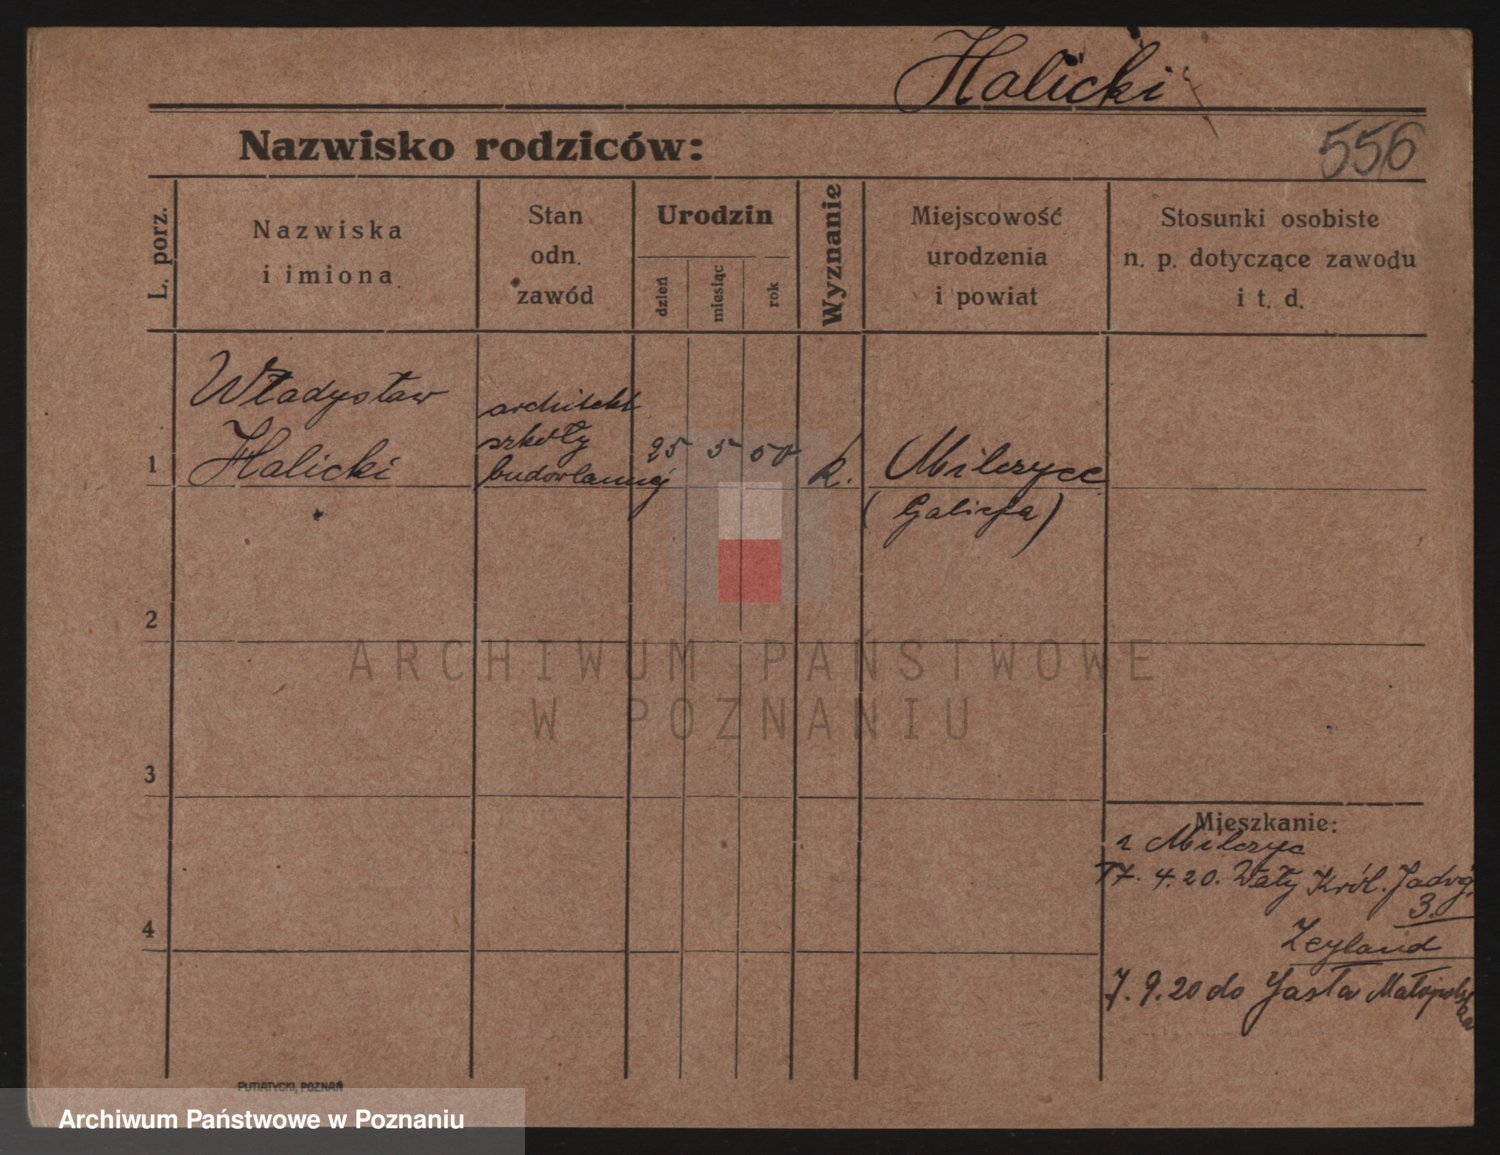 Halicki
Nazwisko rodziców:
556
L. porz.
Nazwiska
i imiona
Stan
odn.
zawód
Urodzin
dzień
miesiąc
rok
Wyznanie
Miejscowość
urodzenia
i powiat
Stosunki osobiste
n. p. dotyczące zawodu
i t. d.
1
Władysław
Halicki
architekt
szkoły
budowlannej
25 5 50
k.
Milczyce
(Galicja)
2
3
4
Mieszkanie:
z Milczyc
17. 4. 20. Wały Król. Jadwig.
3.
Zeyland
7. 9. 20 do Jasła Małopolska
PUTIATYCKI, POZNAŃ
ARCHIWUM PAŃSTWOWE
W POZNANIU
Archiwum Państwowe w Poznaniu